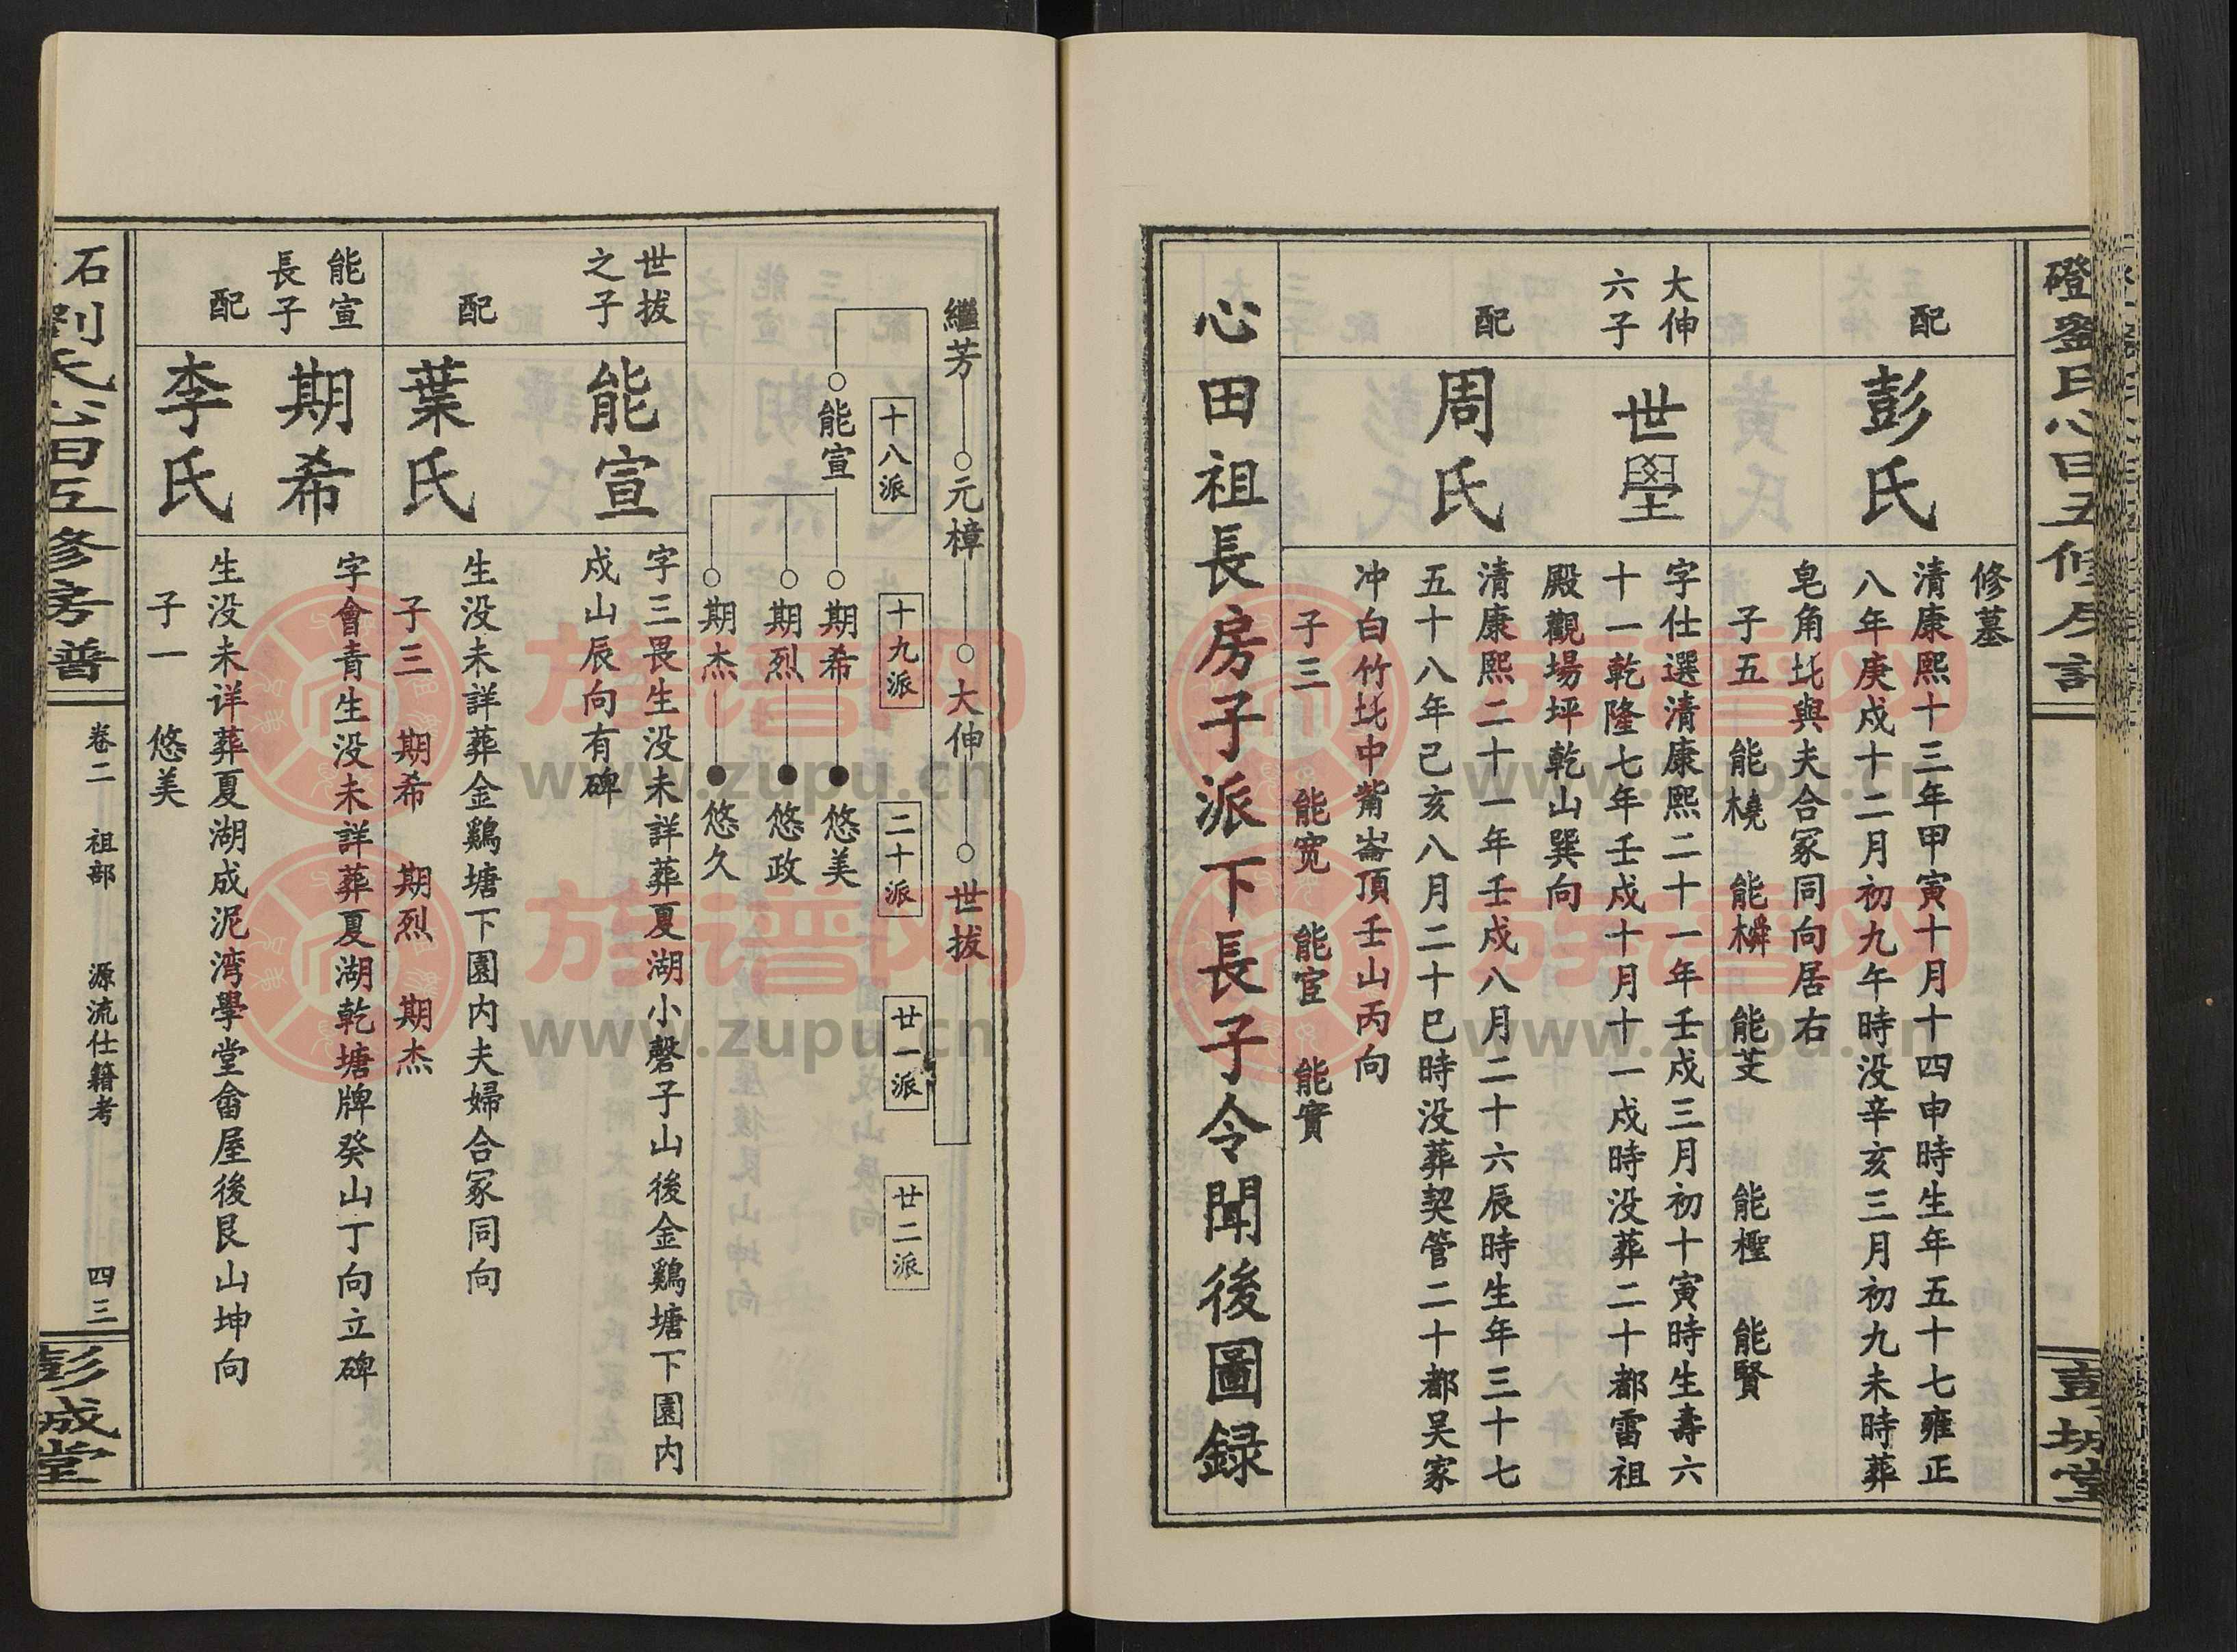 修墓
配
彭氏
清康熙十三年甲寅十月十四申時生年五十七雍正
八年庚戍十二月初九午時没辛亥三月初九未時葬
皂角坉與夫合冢同向居右
子五 能橈 能橓 能芰 能檉 能賢
大伸
六子
世壆
字仕選清康熙二十一年壬戍三月初十寅時生壽六
十一乾隆七年壬戍十月十一戍時没葬二十都雷祖
殿觀場坪乾山巽向
配
周氏
清康熙二十一年壬戍八月二十六辰時生年三十七
五十八年己亥八月二十巳時没葬契管二十都吴家
冲白竹坉中觜崙頂壬山丙向
子三 能宽 能宦 能實
心田祖長房子派下長子令聞後圖録
繼芳 元樟 大伸 世拔
十八派 十九派 二十派 廿一派 廿二派
能宣
期希 悠美
期烈 悠政
期杰 悠久
世拔
之子
能宣
字三畏生没未詳葬夏湖小磬子山後金鷄塘下園内
戍山辰向有碑
配
葉氏
生没未詳葬金鷄塘下園内夫婦合冢同向
子三 期希 期烈 期杰
能宣
長子
期希
字會青生没未詳葬夏湖乾塘牌癸山丁向立碑
配
李氏
生没未详葬夏湖成泥湾學堂畲屋後艮山坤向
子一 悠美
石劉氏心田五修房譜
卷二 祖部 源流仕籍考 四三
彭城堂
族谱网
www.zupu.cn
族谱网
www.zupu.cn
族谱网
www.zupu.cn
族谱网
www.zupu.cn